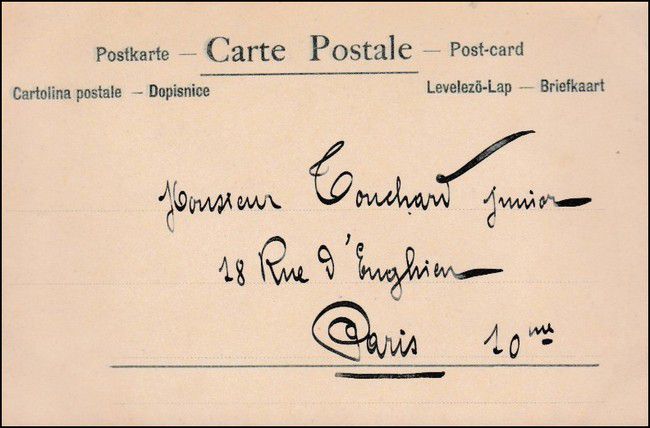 Postkarte — Carte Postale — Post-card
Cartolina postale — Dopisnice Levelezö-Lap — Briefkaart
Monsieur Touchard junior
18 Rue d'Enghien
Paris 10me